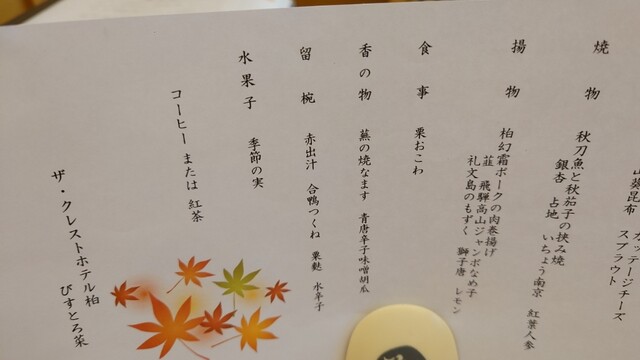 山葵昆布 カッテージチーズ
スプラウト
焼物
秋刀魚と秋茄子の挟み焼
銀杏 占地 いちょう南京 紅葉人参
揚物
柏幻霜ポークの肉巻揚げ
韮 飛騨高山ジャンボなめ子
礼文島のもずく 獅子唐 レモン
食事
栗おこわ
香の物
蕪の焼なます 青唐辛子味噌胡瓜
留椀
赤出汁 合鴨つくね 粟麩 水辛子
水果子
季節の実
コーヒー または 紅茶
ザ・クレストホテル柏
びすとろ菜